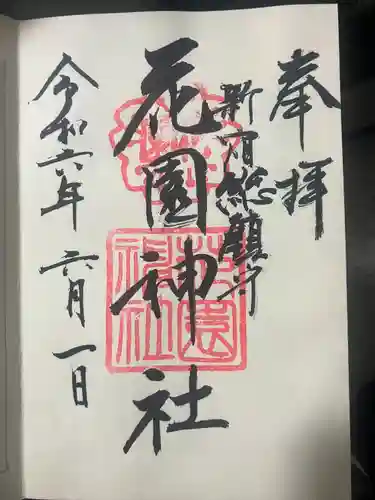 奉拝
新宿総鎮守
花園神社
花園
神社
令和六年六月一日